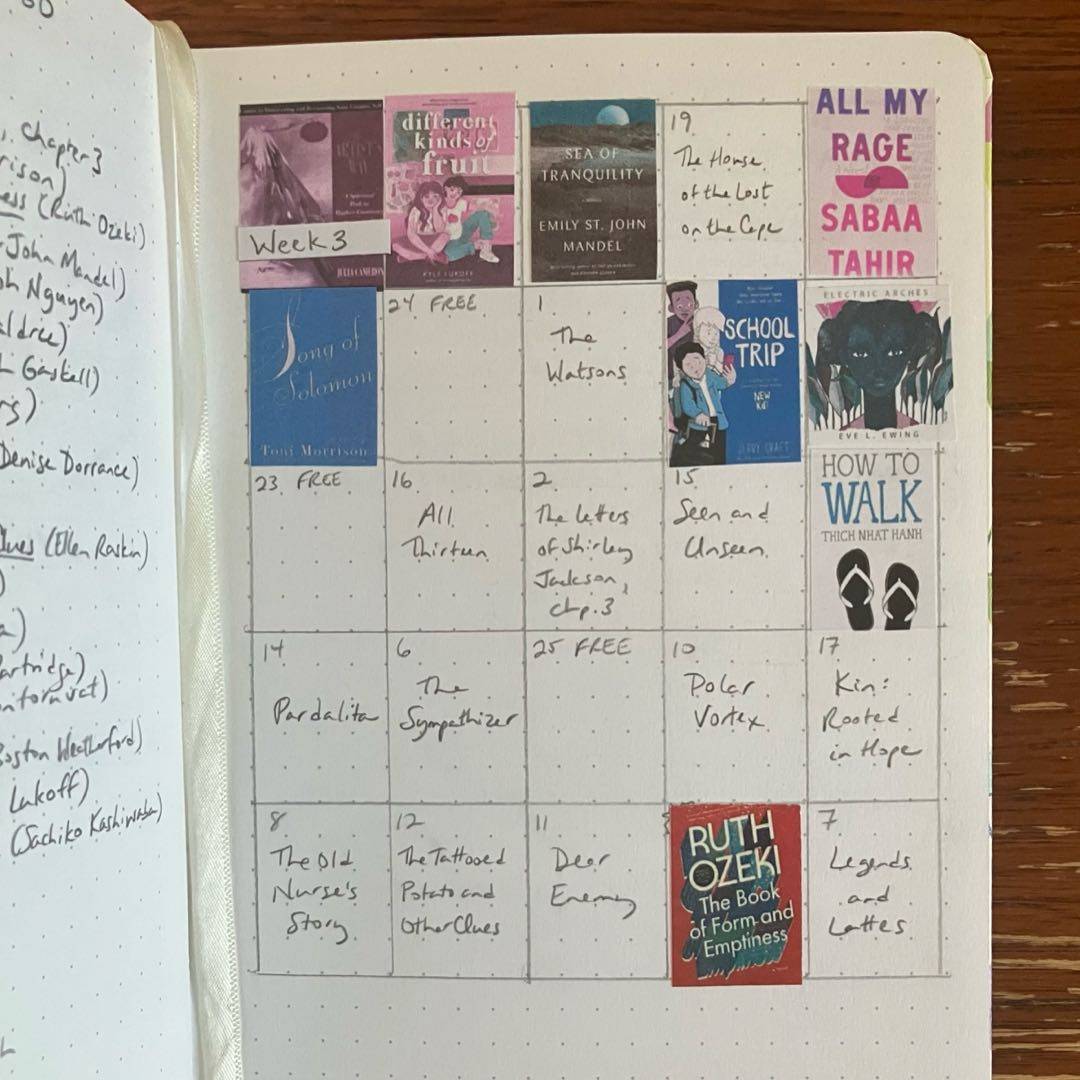 Chapter 3
(Ruth Ozeki)
John Mandel)
Nguyen)
Gaskell)
Denise Dorrance)
Clues (Ellen Raskin)
Partridge)
Boston Weatherford)
Lukoff)
(Sachiko Kashiwaba)
Week 3
JULIA CAMERON
different
kinds of
fruit
KYLE LUKOFF
SEA OF
TRANQUILITY
EMILY ST. JOHN
MANDEL
19
The House
of the Lost
on the Cape
ALL MY
RAGE
SABAA
TAHIR
Song of
Solomon
Toni Morrison
24 FREE
1
The
Watsons
SCHOOL
TRIP
NEW
KID
JERRY CRAFT
ELECTRIC ARCHES
EVE L. EWING
23 FREE
16
All
Thirteen
2
The Letters
of Shirley
Jackson,
chp. 3
15
Seen and
Unseen
HOW TO
WALK
THICH NHAT HANH
14
Pardalita
6
The
Sympathizer
25 FREE
10
Polar
Vortex
17
Kin:
Rooted
in Hope
8
The Old
Nurse's
Story
12
The Tattooed
Potato and
Other Clues
11
Dear
Enemy
RUTH
OZEKI
The Book
of Form and
Emptiness
7
Legends
and
Lattes